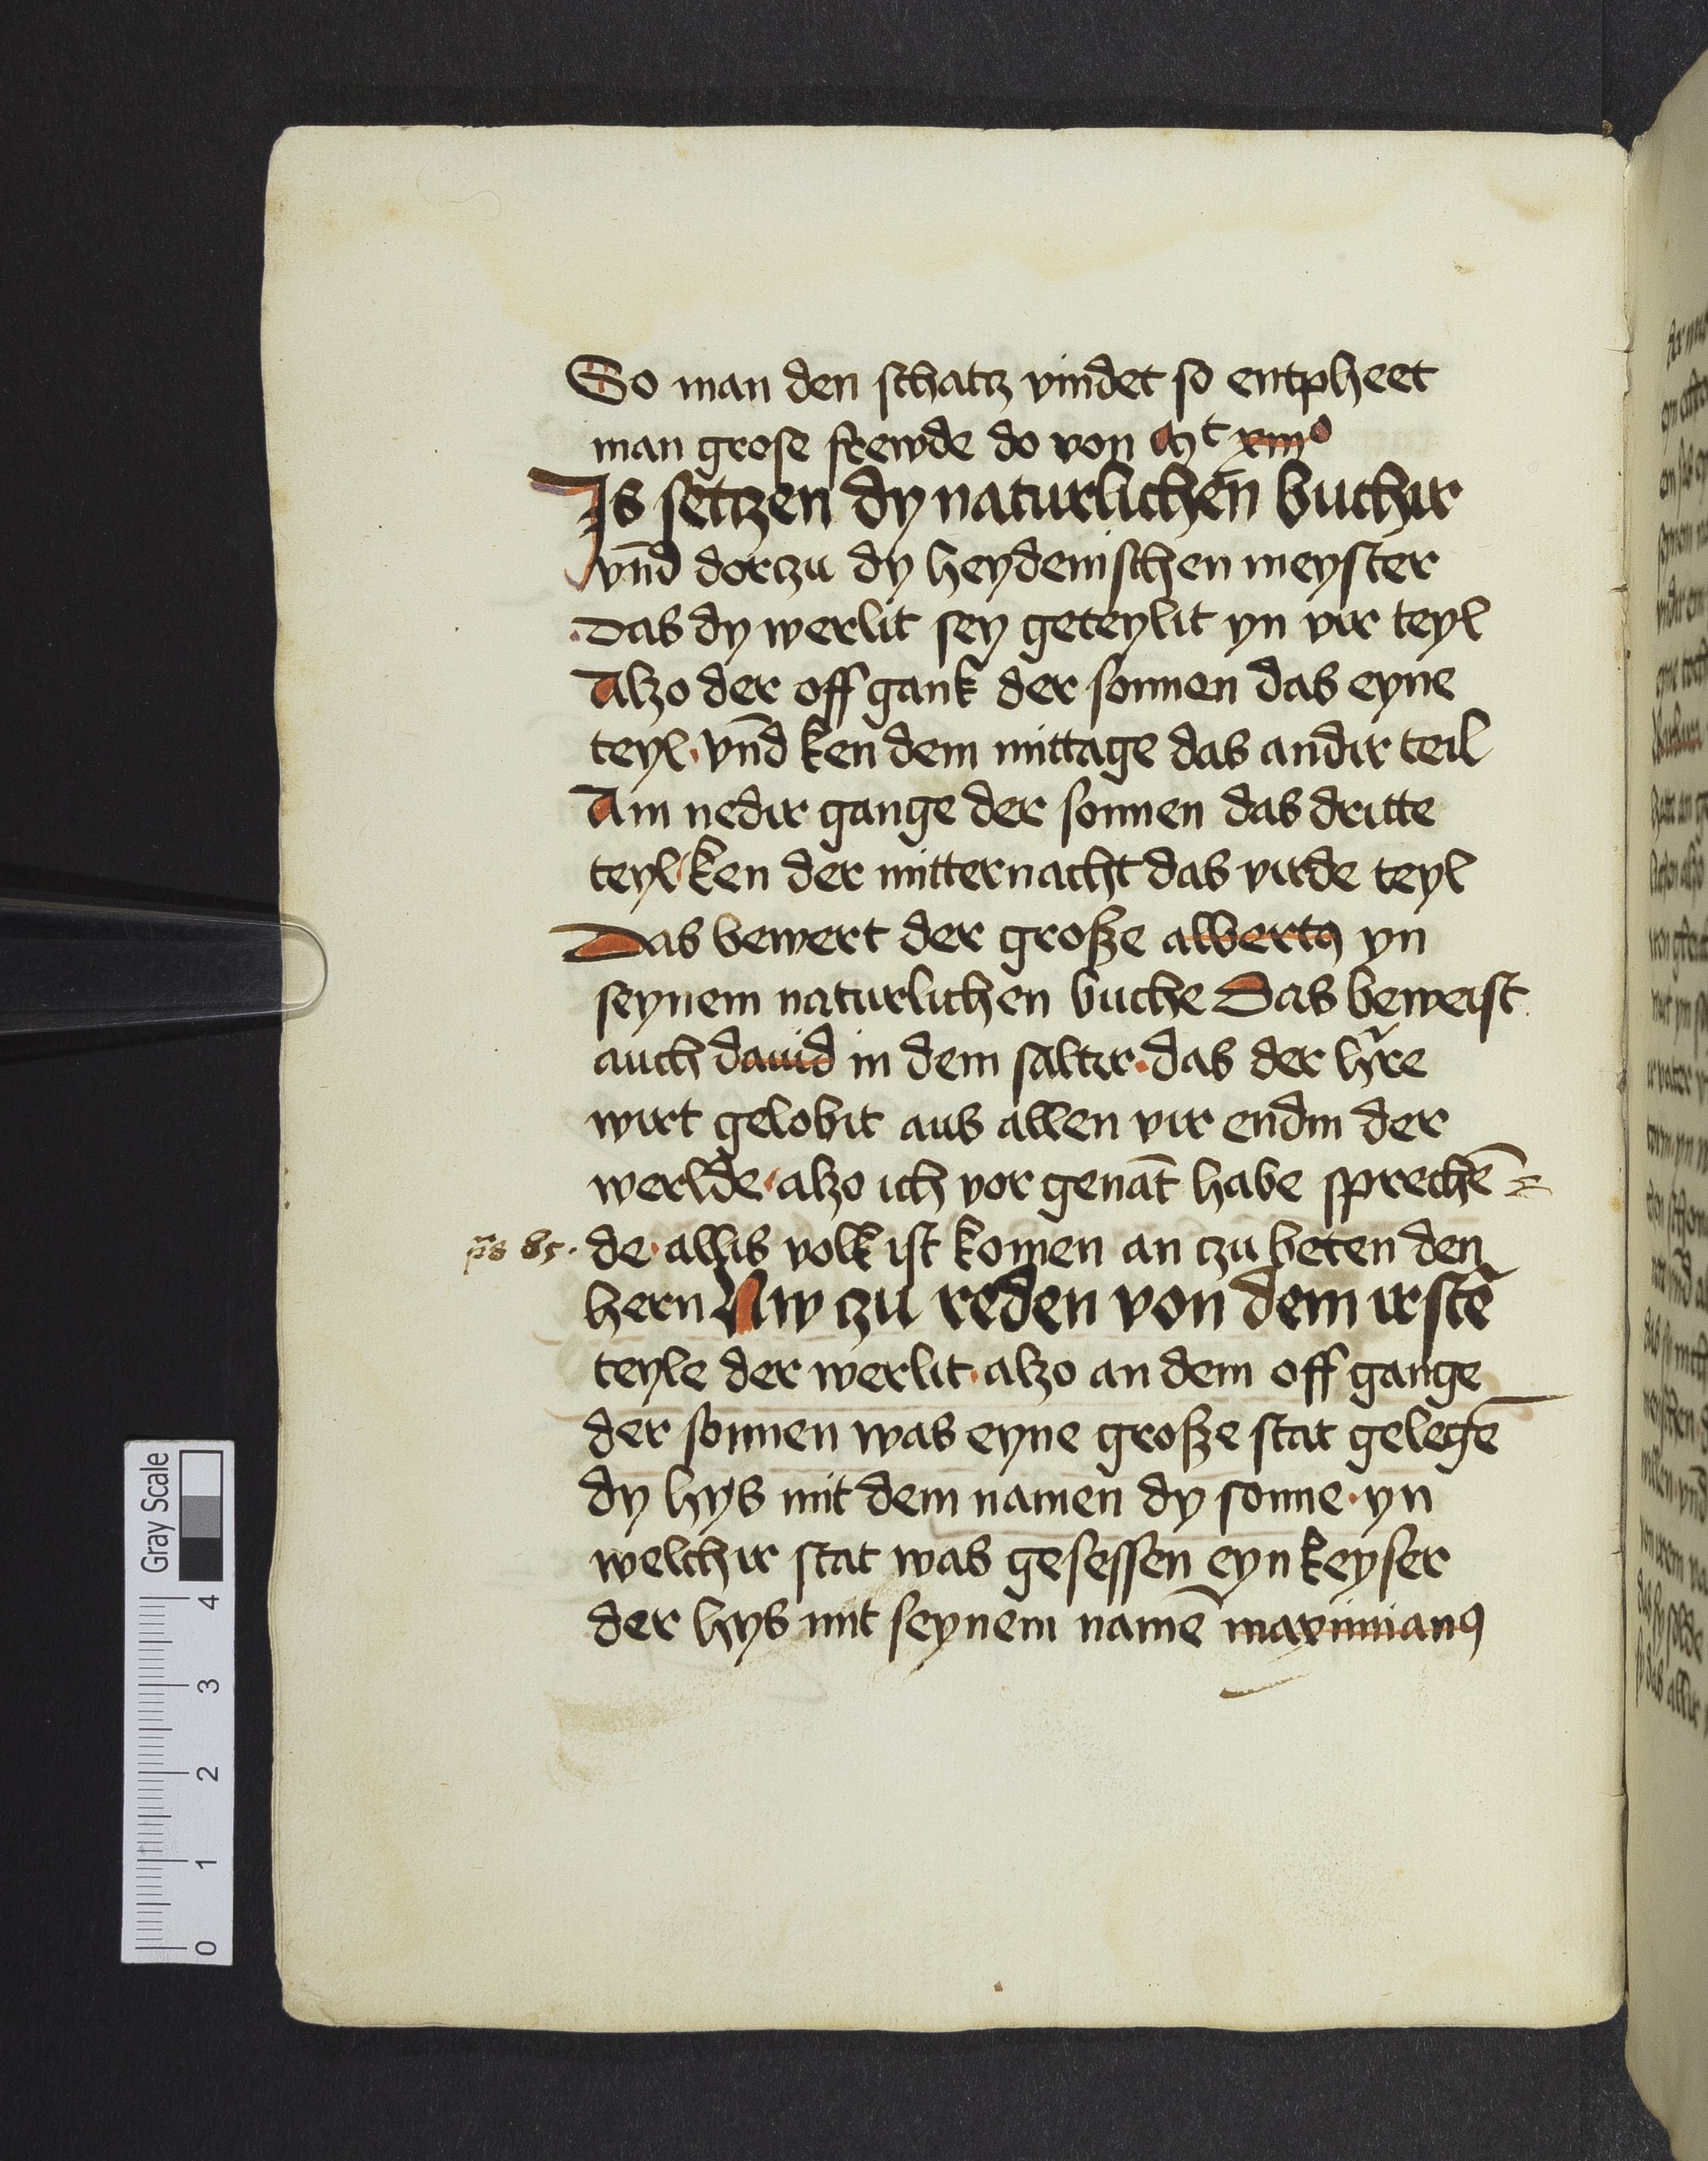 So man den schatz vindet so entpheet
man grose frewde do von Mt xiiiº
Is setczen dy naturlichen buchir
vnd̄ dorczu dy heydenischen meyster
Das dy werlit sey geteylit yn vir teyl
Alzo der off gank der sonnen das eyne
teyl · vnd̄ ken dem mittage das andir teil
Am nedir gange der sonnen das dritte
teyl ken der mitternacht das virde teyl
Das bewert der große albertꝯ yn
seynem naturlichen buche Das beweist
auch dauid in dem salter · das der hr̄e
wirt gelobit aus allen vir endin der
werlde alzo ich vor genāt habe sprechē=
ps̄ 85 · de · allis volk ist komen an czu beten den
hern Nw czu reden von dem irstē
teyle der werlit · alzo an dem off gange
der sonnen was eyne große stat gelegē
dy hys mit dem namen dy sonne · yn
welchir stat was gesessen eyn keyser
der hys mit seynem namē maximianꝯ
Gray Scale
4
3
2
1
0